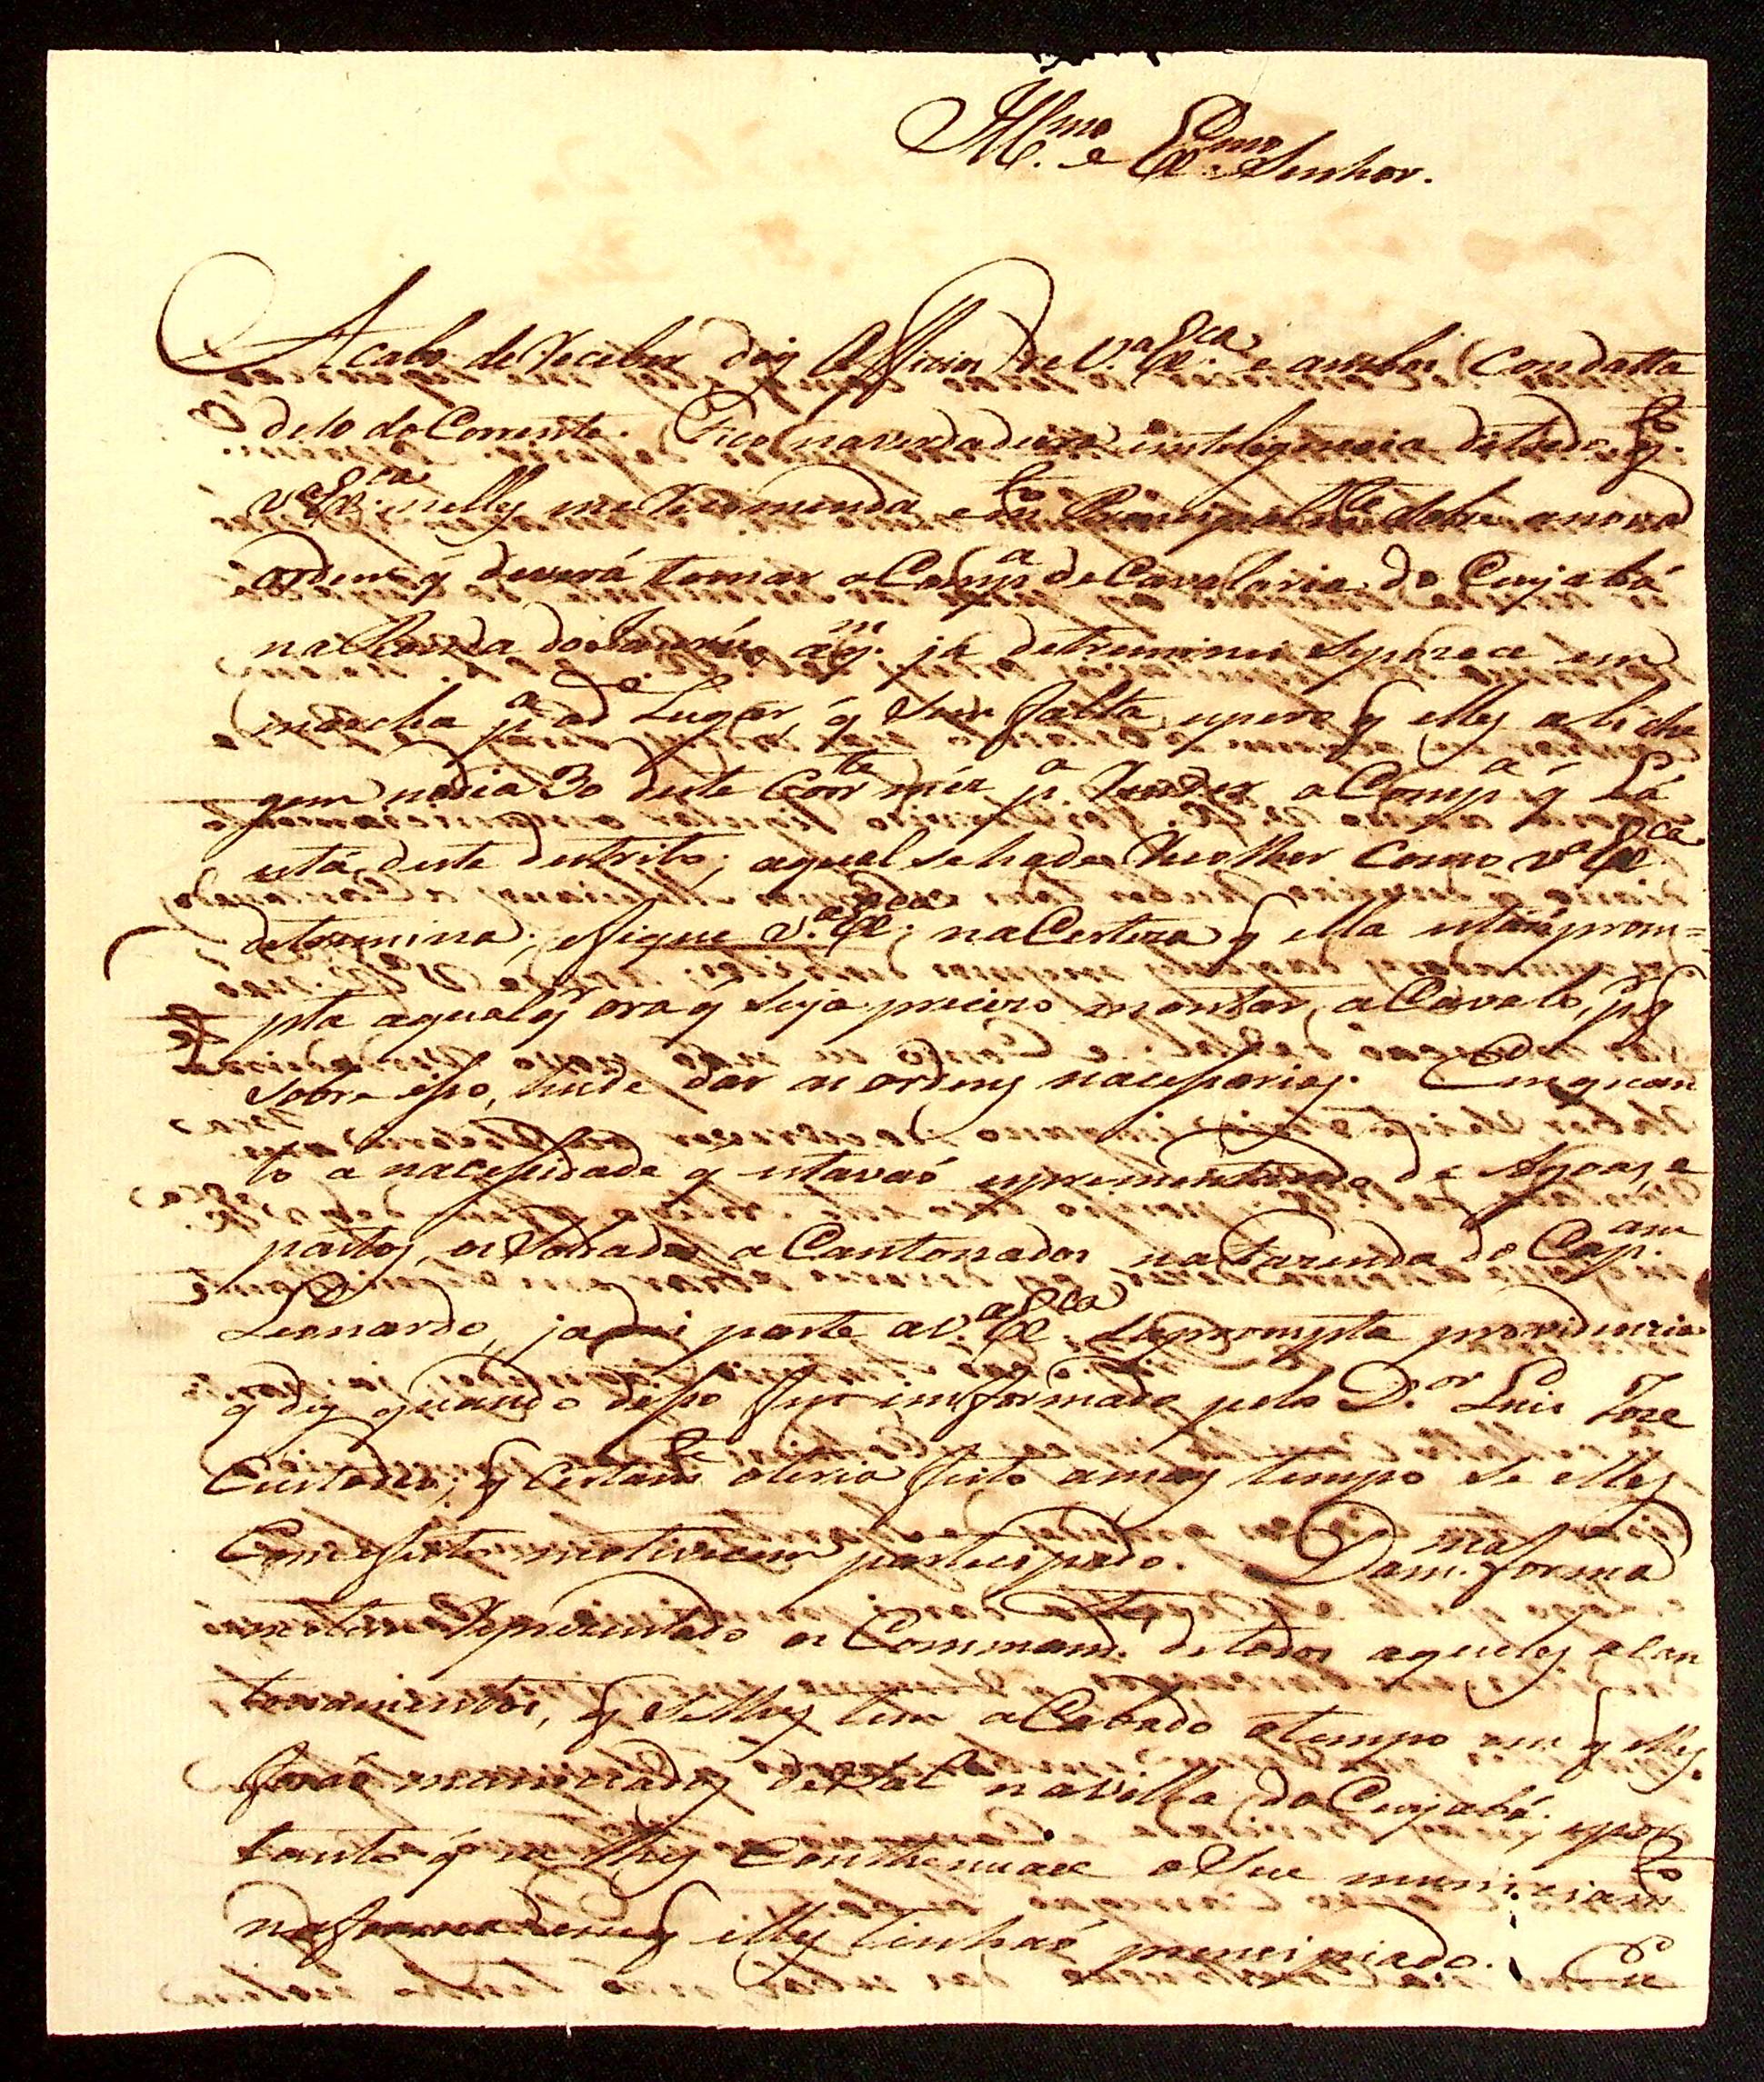 Ill.mo e Ex.mo Senhor.
Acabo de receber doiz Officios de V.a Ex.ca e ambos Com datta
de 10 do Corrente. Fico na verdadeira intelligencia de todo o q.
V.a Ex.ca nelles me recomenda e principalm.te sobre a nova
ordem q̃ deverá tomar a Comp.a de Cavalaria do Cuyabá
na Fronda do Jaurú, a q.m já detreminei se pozece em
marcha p.a o d.o Lugar, q̃ sem falta espero q̃ elles ali che
gem no dia 30 deste Corr.te mêz p.a render a Comp.a q̃ Lá
está deste destrito; a qual se hade recolher Como V.a Ex.ca
detremina; e fique V.a Ex.ca na Certeza q̃ ella estará prom=
pta a qualq.r ora q̃ seja precizo montar a Cavalo, p.q
sobre isso, hide dar as ordens nacessarias. Emquan
to a nacessidade q̃ estavaõ exprementando de Agoas, e
pastos, os Soldados aCantonados na Fazenda do Cap.am
Leonardo, ja dei parte a V.a Ex.ca da prompta providencia
q̃ dey quando disso fui imformado pelo D.or Luis Joze
Custodio; q̃ Certam.te o teria feito a mays tempo se elles
Com efeito me tivecem participado. Da m.ma forma
me tem reprezentado os Commam.tes de todos aqueles aCan
tonamentos, q̃ se lhes tem aCabado o tempo em q̃ elles
foraõ maniciados de sal na Villa do Cuyabá, e por
tanto q̃ se lhes Conthenuace o seu municiam.to
na forma em q̃ elles tinhaõ principiado. Eu